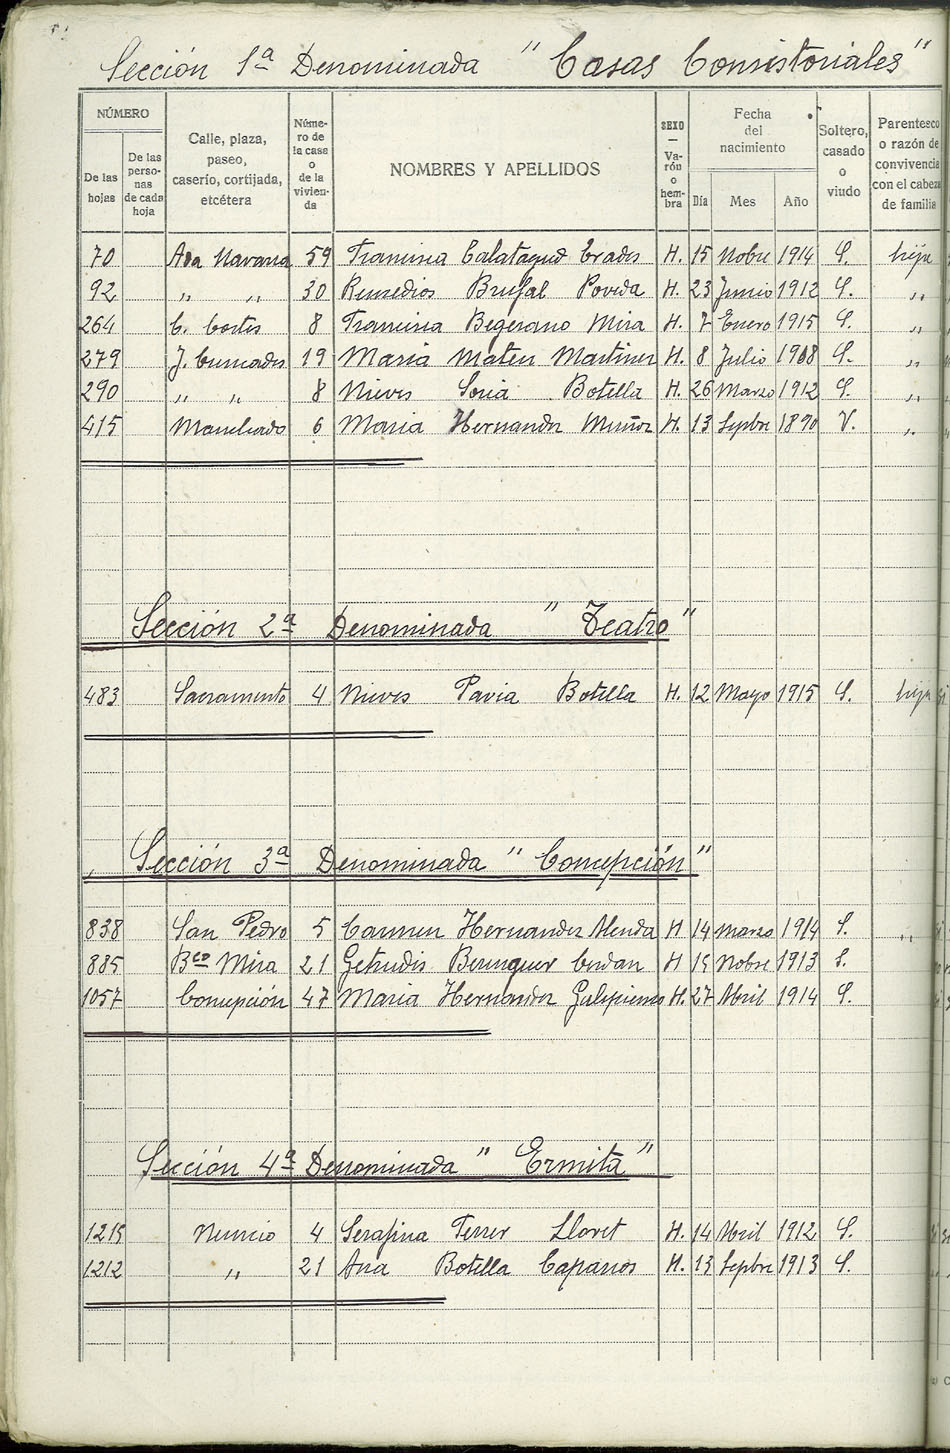 Sección 1ª Denominada " Casas Consistoriales"
NÚMERO
De las hojas
De las personas de cada hoja
Calle, plaza, paseo, caserío, cortijada, etcétera
Núme-ro de la casa o de la vivien-da
NOMBRES Y APELLIDOS
SEXO — Va-rón o hem-bra
Fecha del nacimiento
Día Mes Año
Soltero, casado o viudo
Parentesco o razón de convivencia con el cabeza de familia
70 Ava Navarra 59 Francisca Calatayud Crades H. 15 Nobre 1914 S. hija
92 " " 30 Remedios Brufal Poveda H. 23 Junio 1912 S. "
264 C. Cortes 8 Francisca Begerano Mira H. 7 Enero 1915 S. "
279 J. 19 Maria Mateu Martinez H. 8 Julio 1908 S. "
290 " " 8 Nieves Soria Botella H. 26 Marzo 1912 S. "
415 6 Maria Hernandez Muñoz H. 13 Sepbre 1890 V. "
Sección 2ª Denominada " Teatro"
483 Sacramento 4 Nieves Pavia Botella H. 12 Mayo 1915 S. hija
Sección 3ª Denominada " Concepción"
838 San Pedro 5 Carmen Hernandez Alenda H 14 Marzo 1914 S. "
885 Bco Mira 21 Getrudis Berenguer Cerdan H 15 Nobre 1913 S.
1057 Concepción 47 Maria Hernandez Galipienso H. 27 Abril 1914 S.
Sección 4ª Denominada " Ermita"
1215 Nuncio 4 Serafina Ferrer Lloret H. 14 Abril 1912 S.
1212 " 21 Ana Botella Caparros H. 13 Sepbre 1913 S.